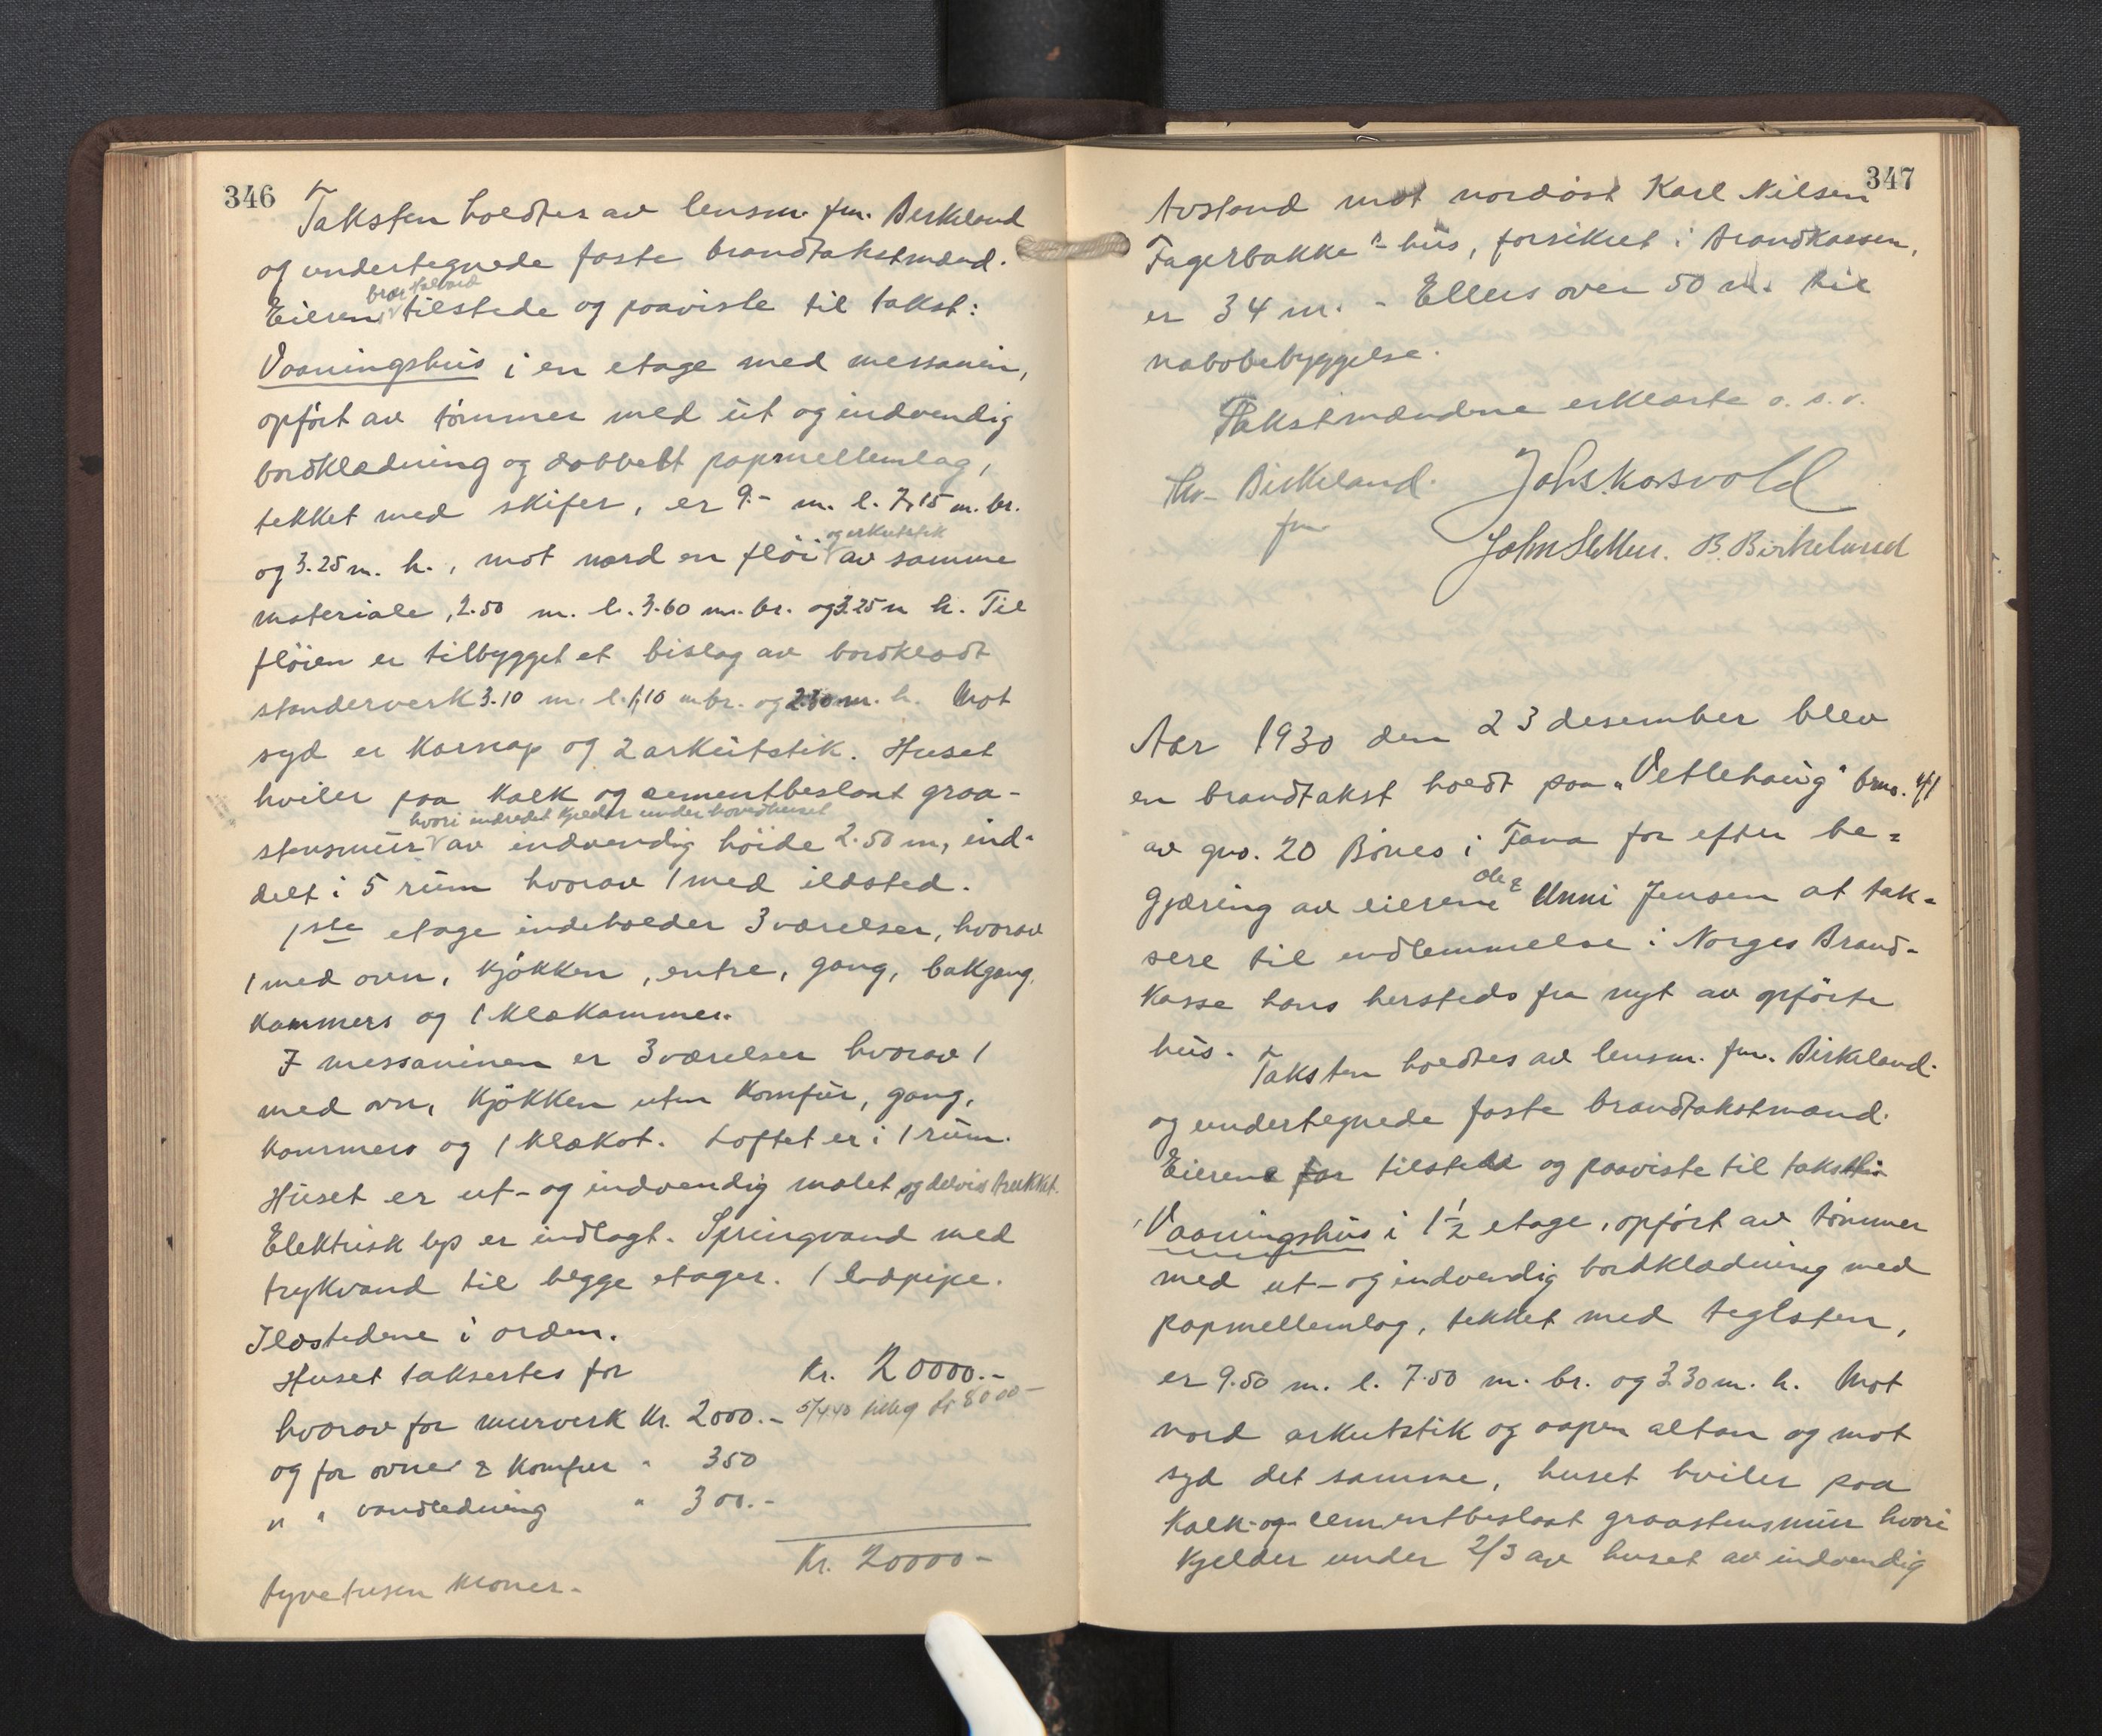 346
Taksten holdtes av lensm. fm. Birkeland
og undertegnede faste brandtakstmænd.
Eieren bror Halvard tilstede og paaviste til takst:
Vaaningshus i en etage med messanin,
opført av tømmer med ut og indvendig
bordklædning og dobbelt papmellemlag,
tekket med skifer, er 9.- m. l. 7,15 m. br.
og 3.25 m. h., mot nord en fløi og arkutstik av samme
materiale, 2.50 m. l. 3.60 m. br. og 3.25 m h. Til
fløien er tilbygget et bislag av bordklædt
standerverk 3.10 m. l. 1,10 m br. og 2.30 m. h. Mot
syd er karnap og 2 arkutstik. Huset
hviler paa kalk og cementbeslaat graa-
stensmur hvori indredet kjelder under hovedhuset av indvendig høide 2.50 m, ind-
delt i 5 rum hvorav 1 med ildsted.
1ste etage indeholder 3 værelser, hvorav
1 med ovn, kjøkken, entre, gang, bakgang,
kammers og 1 klækammer.
I messaninen er 3 værelser hvorav 1
med ovn, kjøkken uten komfur, gang,
kammers og 1 klækot. Loftet er i 1 rum.
Huset er ut- og indvendig malet og delvis trukket.
Elektrisk lys er indlagt. Springvand med
trykvand til begge etager. 1 ledpipe.
Ildstedene i orden.
Huset taksertes for Kr. 20000.-
hvorav for murverk Kr. 2000.- 5/4 40 tillæg kr 8000-
og for ovner & komfur " 350
" " vandledning " 300.-
Kr. 20000-
tyvetusen kroner.-
347
Avstand mot nordøst Karl Nilsen
Fagerbakke's hus, forsikret i Brandkassen,
er 34 m. - Ellers over 50 m. til
nabobebyggelse.
Takstmændene erklærte o. s. v.
Birkeland. Johs. Korsvold
fm
John B. Birkelund
Aar 1930 den 23 desember blev
en brandtakst holdt paa "Vetlehaug" brno. 41
av gno. 20 Bønes i Fana for efter be-
gjæring av eierene Ole & Unni Jensen at tak-
sere til indlemmelse i Norges Brand-
kasse hans hersteds fra nyt av opførte
hus.
Taksten holdtes av lensm. fm. Birkeland
og undertegnede faste brandtakstmænd.
Eierene var tilstede og paaviste til takst
Vaaningshus i 1½ etage, opført av tømmer
med ut- og indvendig bordklædning med
papmellemlag, tekket med teglsten,
er 9.50 m. l. 7.50 m. br. og 3.30 m. h. Mot
nord arkutstik og aapen altan og mot
syd det samme, huset hviler paa
kalk- og cementbeslaat graastensmur hvori
kjelder under 2/3 av huset av indvendig